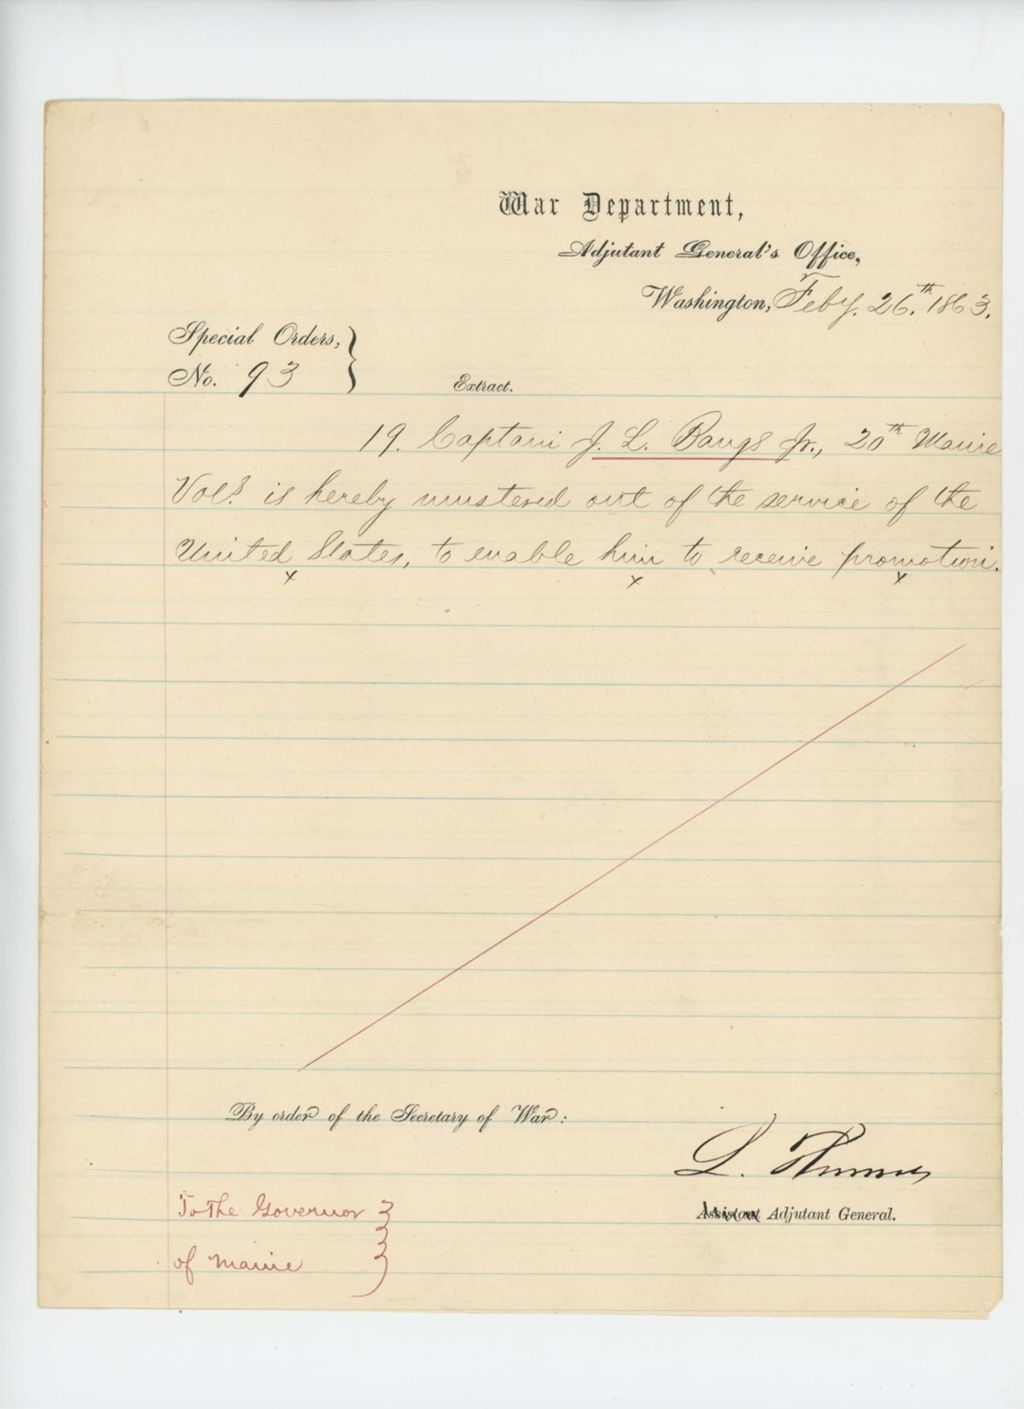 War Department,
Adjutant General's Office,
Washington, Feby. 26th 1863.
Special Orders,
No. 93
Extract.
19. Captain J. L. Bangs Jr., 20th Maine
Vols. is hereby mustered out of the service of the
United States, to enable him to receive promotion.
x x x
By order of the Secretary of War:
L. Thomas
Assistant Adjutant General.
To the Governor
of Maine